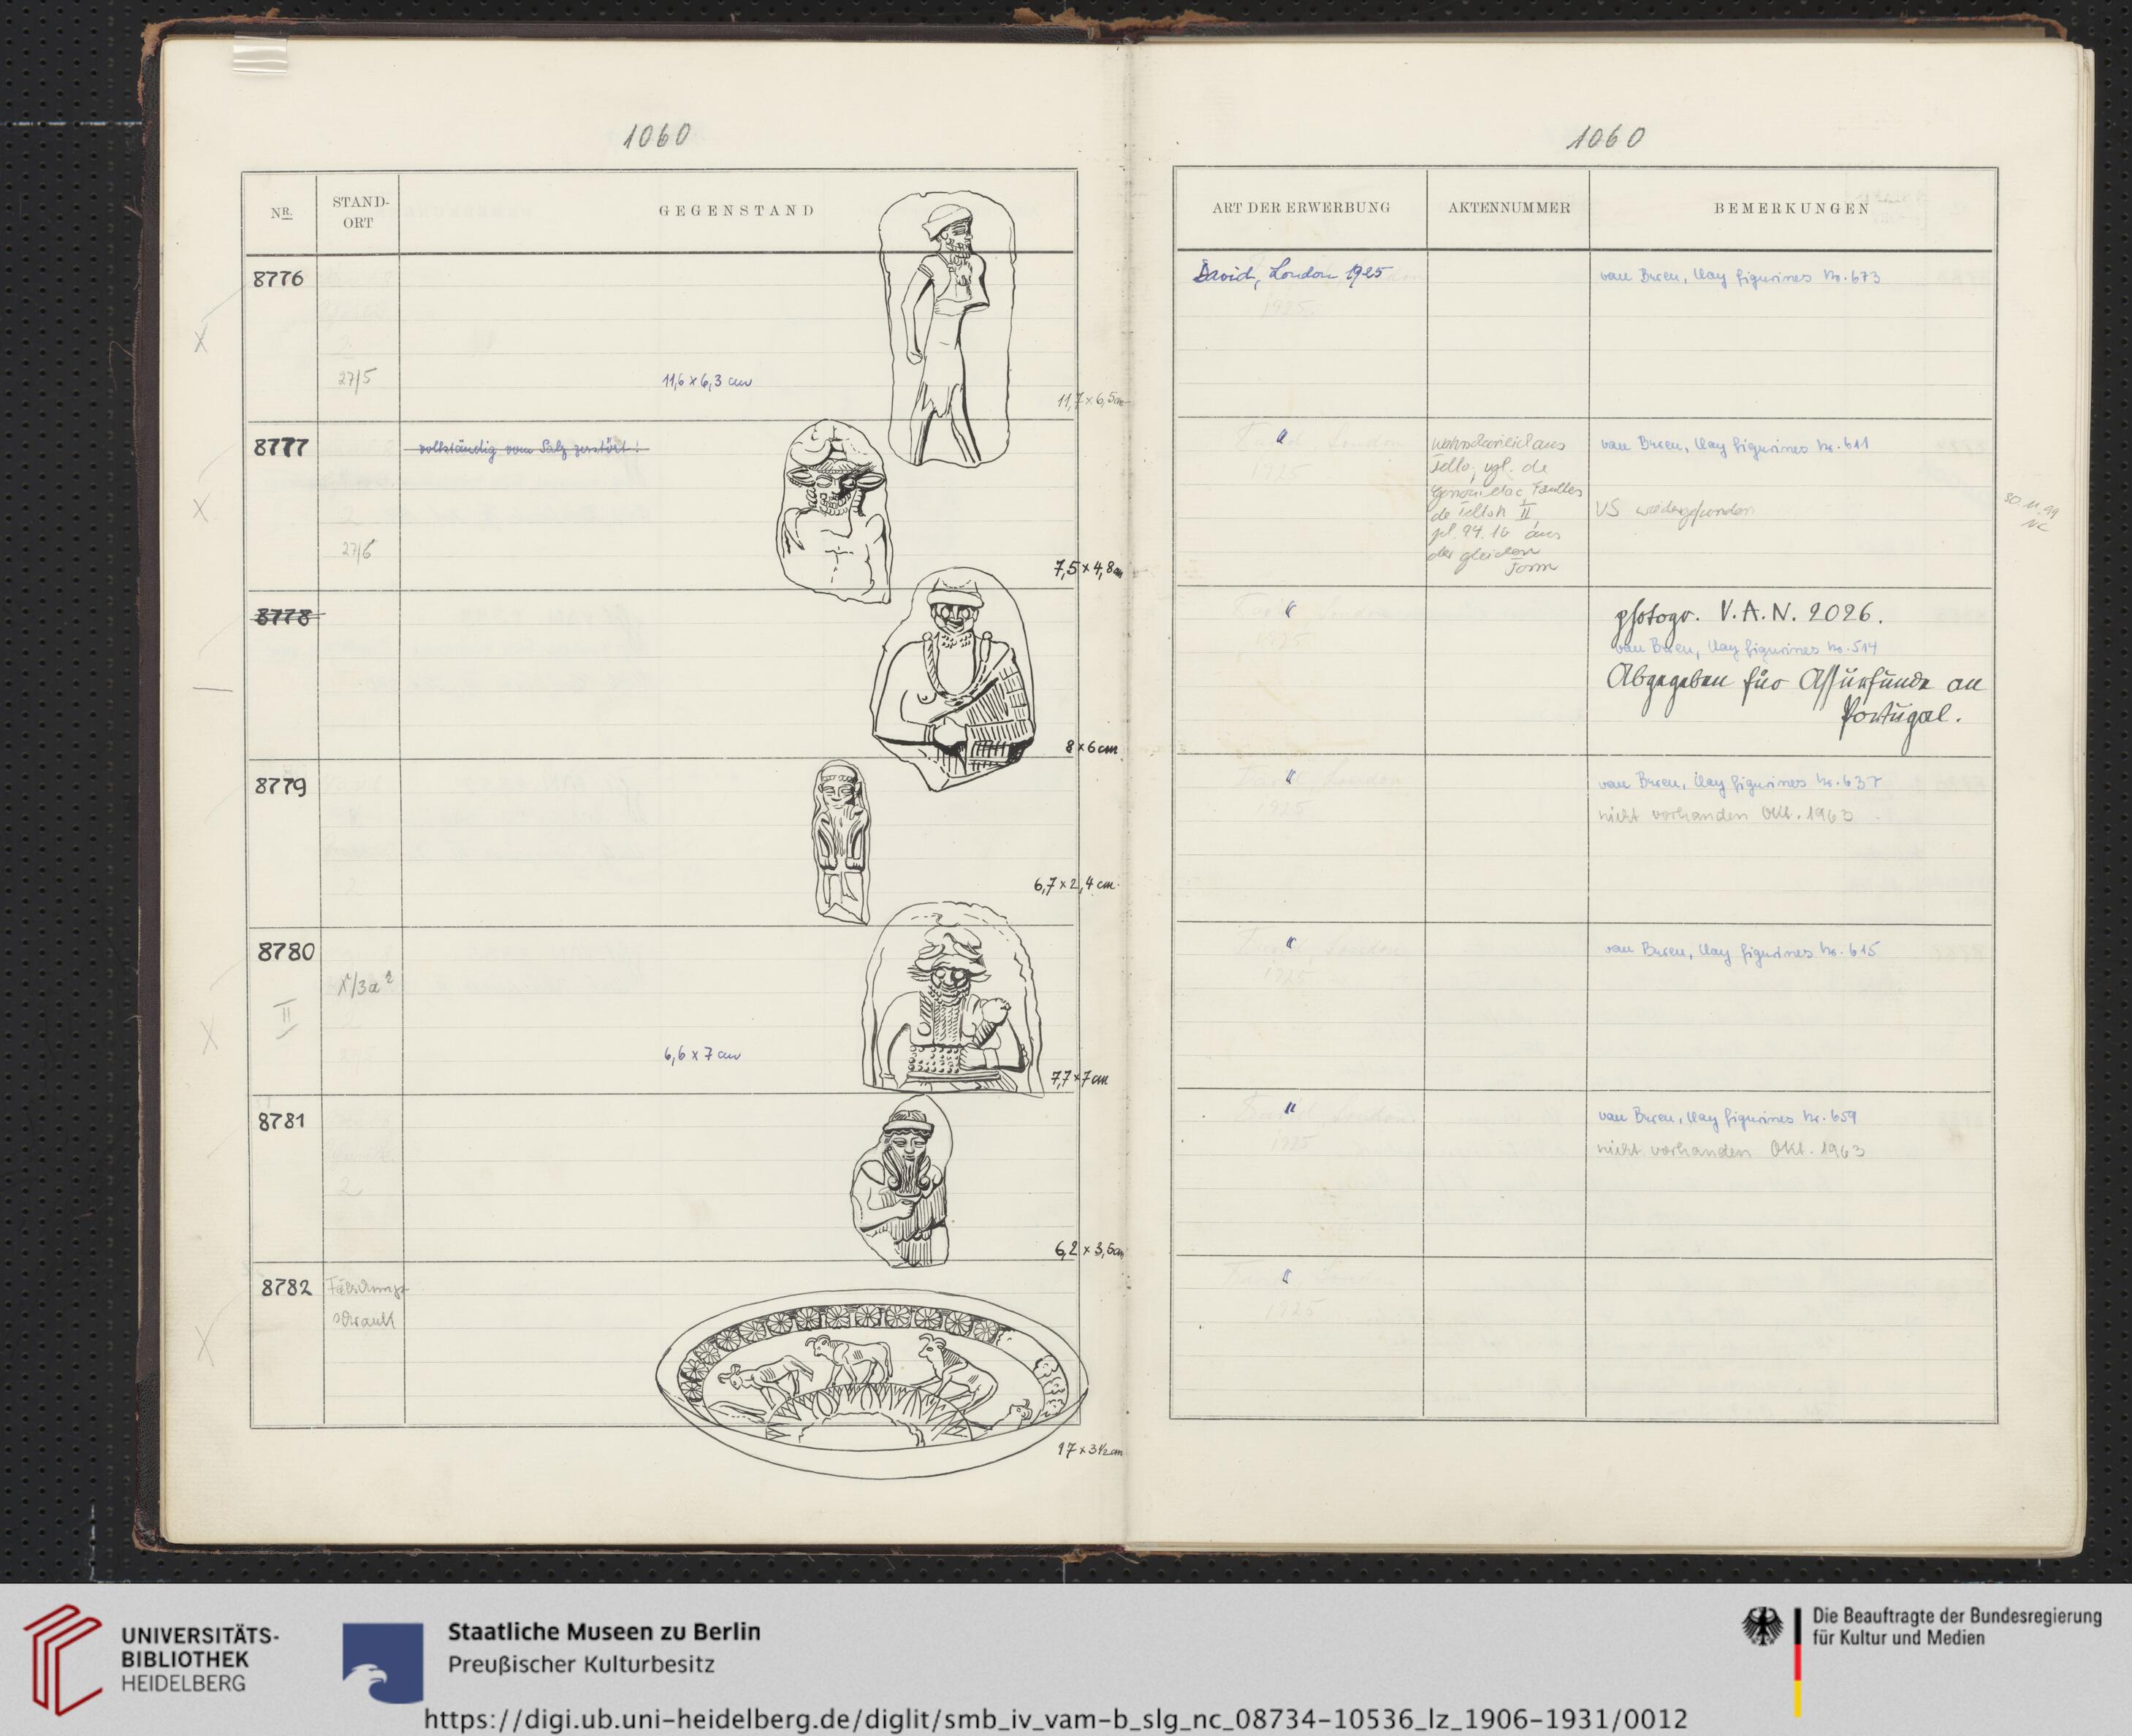 1060
NR.
STAND-
ORT
GEGENSTAND
8776
27/5
11,6 x 6,3 cm
11,7 x 6,5 cm
8777
vollständig vom Salz zerstört!
2
27/6
7,5 x 4,8 cm
8778
8 x 6 cm
8779
6,7 x 2,4 cm
8780
II
6,6 x 7 cm
7,7 x 7 cm
8781
2
6,2 x 3,5 cm
8782
Fälschungs-
schrank
17 x 3 1/2 cm
1060
ART DER ERWERBUNG
AKTENNUMMER
BEMERKUNGEN
David, London 1925
van Buren, Clay figurines Nr. 673
"
wahrscheinlich aus
Tello, vgl. de
Genouillac, Fouilles
de Telloh II,
pl. 94. 1b aus
der gleichen
Form
van Buren, Clay figurines Nr. 611
VS wiedergefunden
30.11.99
NC
"
photogr. V.A.N. 2026.
van Buren, Clay figurines Nr. 514
Abgegeben für Assurfunde an
Portugal.
"
van Buren, Clay figurines Nr. 637
nicht vorhanden Okt. 1963
"
van Buren, Clay figurines Nr. 615
"
van Buren, Clay figurines Nr. 659
nicht vorhanden Okt. 1963
"
UNIVERSITÄTS-
BIBLIOTHEK
HEIDELBERG
Staatliche Museen zu Berlin
Preußischer Kulturbesitz
Die Beauftragte der Bundesregierung
für Kultur und Medien
https://digi.ub.uni-heidelberg.de/diglit/smb_iv_vam-b_slg_nc_08734-10536_lz_1906-1931/0012